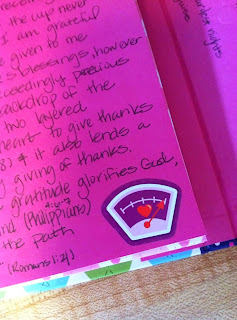 the cup never
I am grateful
e given to me
s blessings, however
creasingly precious
backdrop of the
two layered
heart to give thanks
8) & it also lends a
giving of thanks.
gratitude glorifies God,
nd (Philippians)
4:6-7
the path
(Romans 1:21)
nights